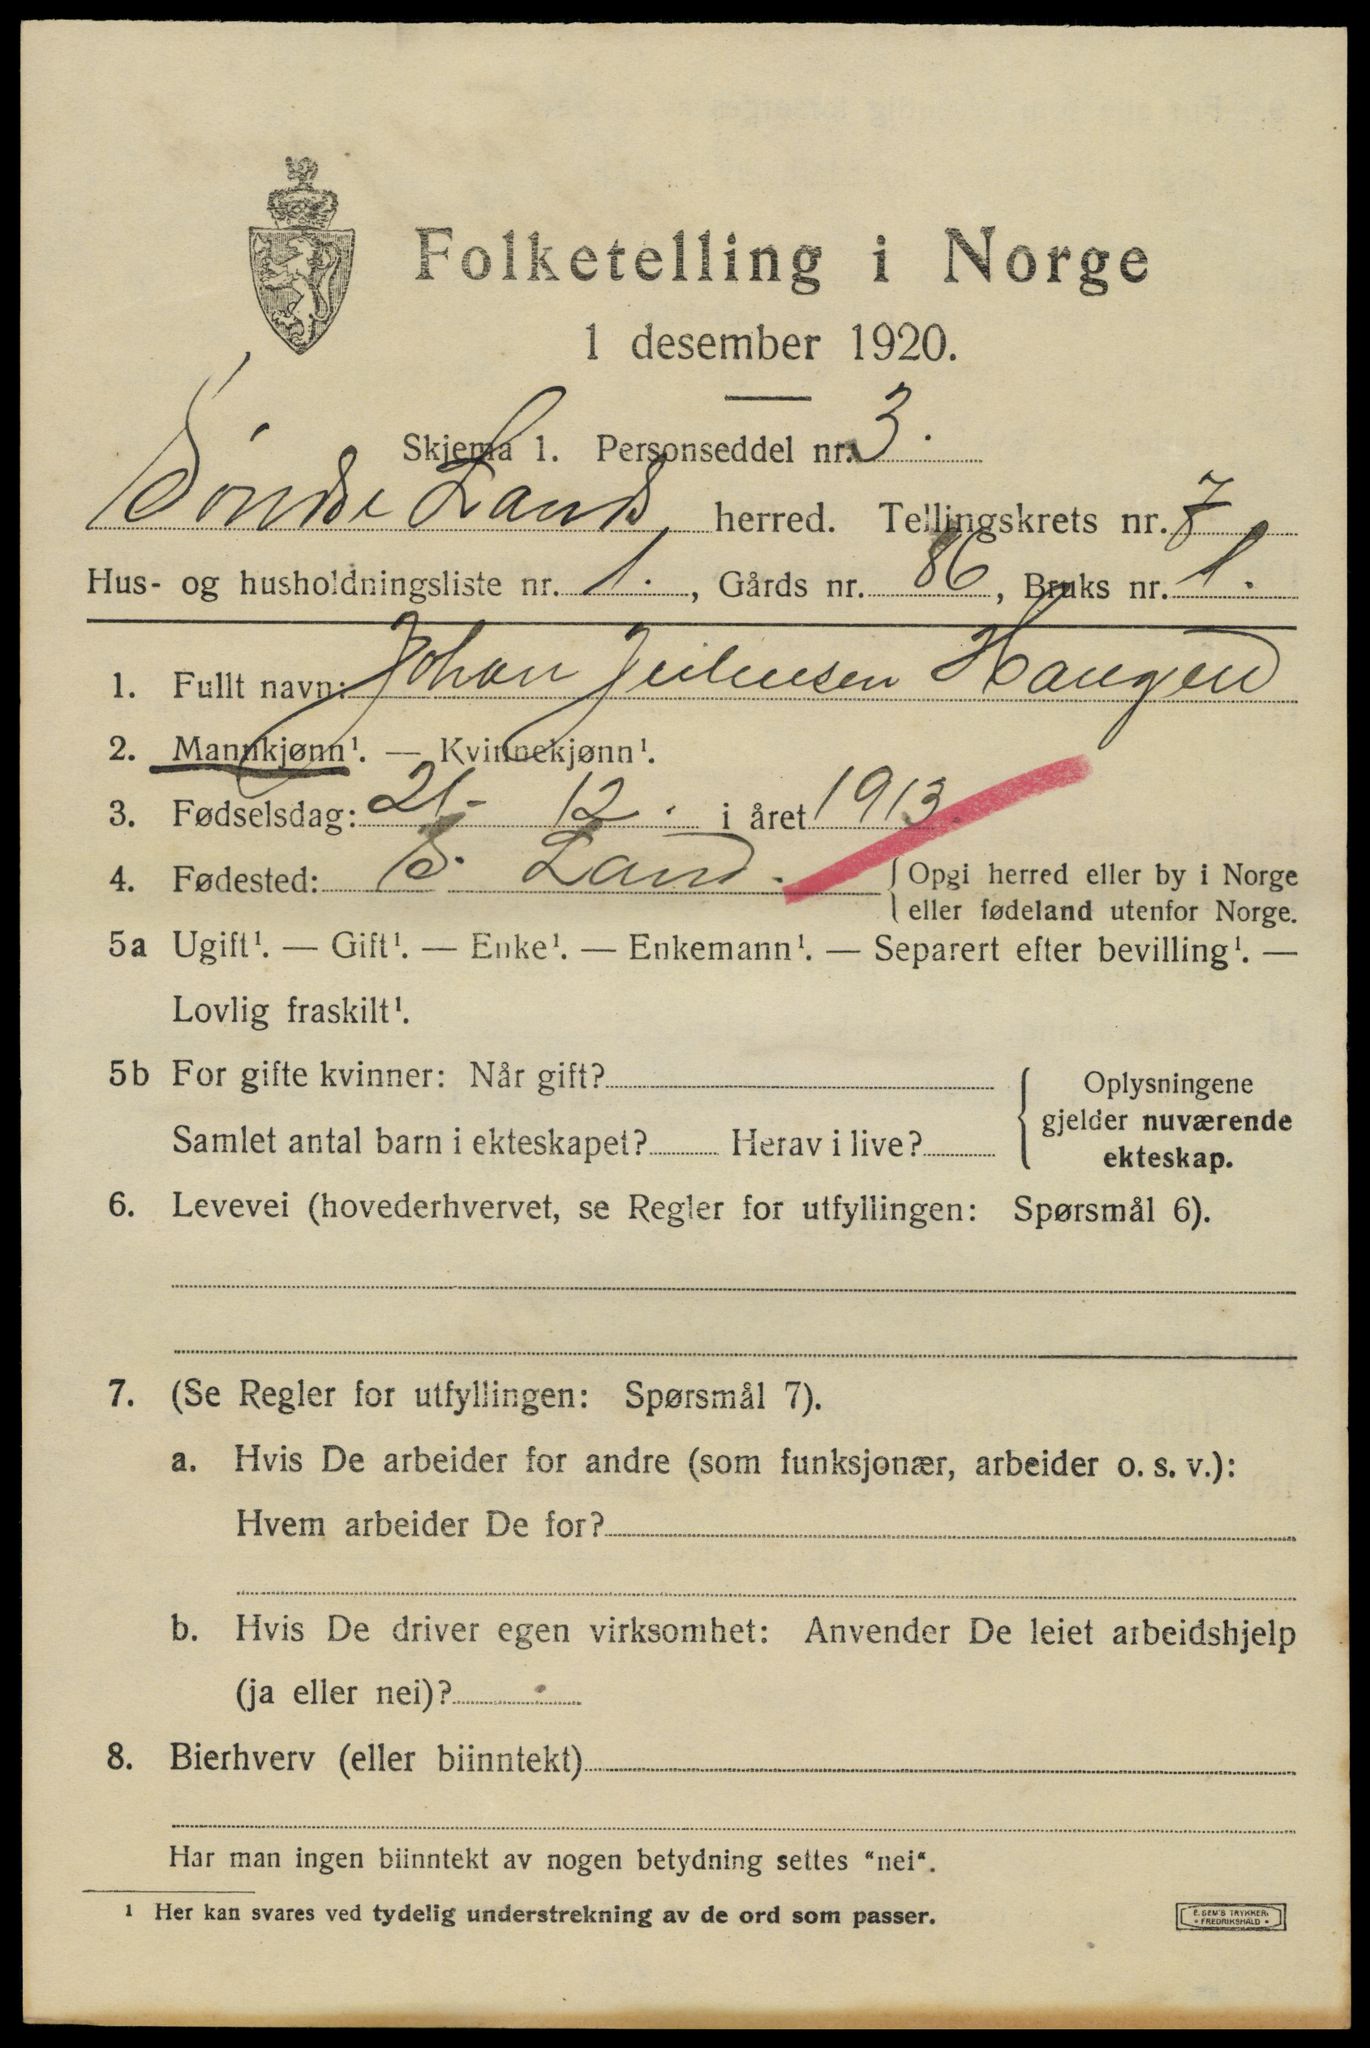 Folketelling i Norge
1 desember 1920.
Skjema 1. Personseddel nr. 3.
Søndre Land herred. Tellingskrets nr. 7
Hus- og husholdningsliste nr. 1., Gårds nr. 86, Bruks nr. 1.
1. Fullt navn: Johan Haugen
2. Mannkjønn¹. — Kvinnekjønn¹.
3. Fødselsdag: 21- 12. i året 1913.
4. Fødested: S. Land. { Opgi herred eller by i Norge
eller fødeland utenfor Norge.
5a Ugift¹. — Gift¹. — Enke¹. — Enkemann¹. — Separert efter bevilling¹. —
Lovlig fraskilt¹.
5b For gifte kvinner: Når gift?
Samlet antal barn i ekteskapet? Herav i live?
{ Oplysningene
gjelder nuværende
ekteskap.
6. Levevei (hovederhvervet, se Regler for utfyllingen: Spørsmål 6).
7. (Se Regler for utfyllingen: Spørsmål 7).
a. Hvis De arbeider for andre (som funksjonær, arbeider o. s. v.):
Hvem arbeider De for?
b. Hvis De driver egen virksomhet: Anvender De leiet arbeidshjelp
(ja eller nei)?
8. Bierhverv (eller biinntekt)
Har man ingen biinntekt av nogen betydning settes "nei".
¹ Her kan svares ved tydelig understrekning av de ord som passer.
E. SEM'S TRYKKERI
• FREDRIKSHALD •